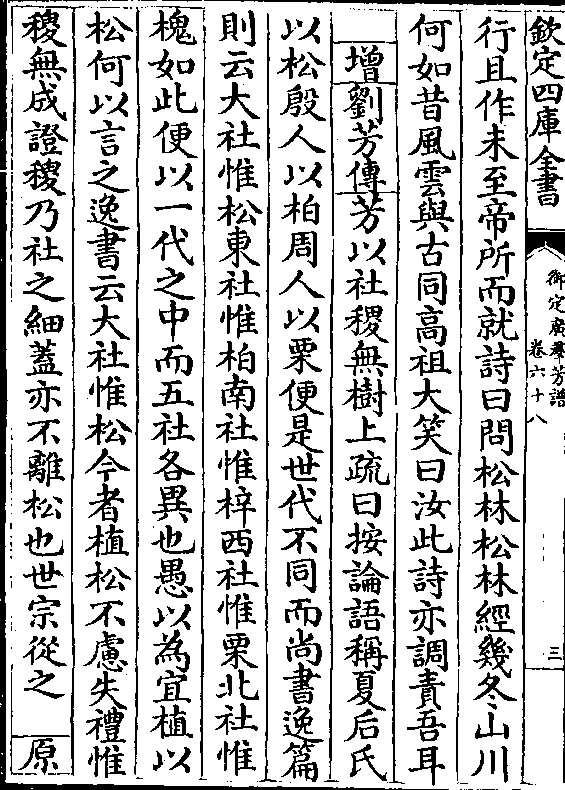 欽定四庫全書
御定廣羣芳譜
卷六十八
三
行且作未至帝所而就詩曰問松林松林經幾冬山川
何如昔風雲與古同高祖大笑曰汝此詩亦調責吾耳
增劉芳傳芳以社稷無樹上疏曰按論語稱夏后氏
以松殷人以柏周人以栗便是世代不同而尚書逸篇
則云大社惟松東社惟柏南社惟梓西社惟栗北社惟
槐如此便以一代之中而五社各異也愚以為宜植以
松何以言之逸書云大社惟松今者植松不慮失禮惟
稷無成證稷乃社之細蓋亦不離松也世宗從之 原